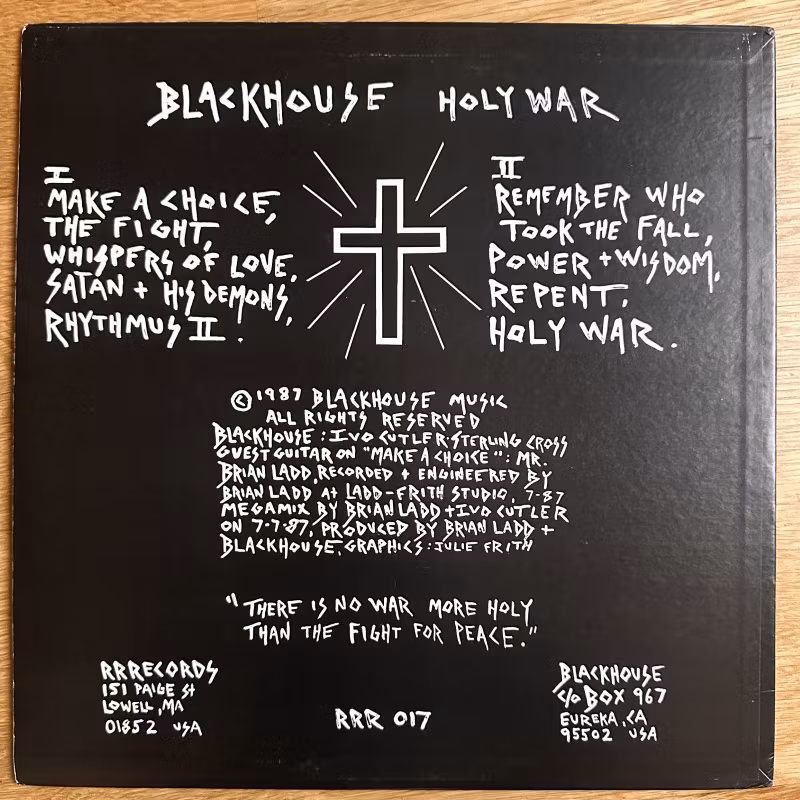 BLACKHOUSE HOLY WAR
I
MAKE A CHOICE,
THE FIGHT,
WHISPERS OF LOVE,
SATAN + HIS DEMONS,
RHYTHMUS II.
II
REMEMBER WHO
TOOK THE FALL,
POWER + WISDOM,
REPENT,
HOLY WAR.
© 1987 BLACKHOUSE MUSIC
ALL RIGHTS RESERVED
BLACKHOUSE: IVO CUTLER·STERLING CROSS
GUEST GUITAR ON "MAKE A CHOICE": MR.
BRIAN LADD, RECORDED + ENGINEERED BY
BRIAN LADD AT LADD-FRITH STUDIO, 7-87
MEGAMIX BY BRIAN LADD + IVO CUTLER
ON 7-7-87, PRODUCED BY BRIAN LADD +
BLACKHOUSE, GRAPHICS: JULIE FRITH
"THERE IS NO WAR MORE HOLY
THAN THE FIGHT FOR PEACE."
RRRECORDS
151 PAIGE St
LOWELL, MA
01852 USA
RRR 017
BLACKHOUSE
c/o BOX 967
EUREKA, CA
95502 USA